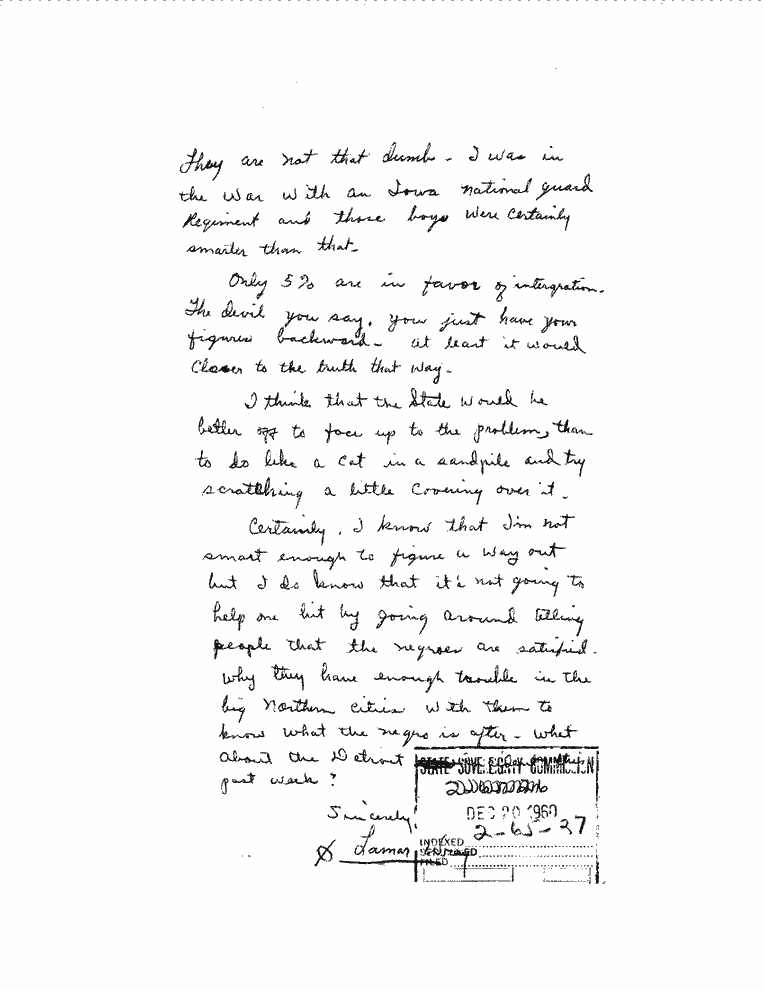 They are not that dumb - I was in
the war with an Iowa national guard
Regiment and those boys were certainly
smarter than that -
Only 5% are in favor of intergration.
The devil you say, you just have your
figures backward - at least it would
closer to the truth that way -
I think that the State would be
better off to face up to the problem, than
to do like a cat in a sandpile and try
scratching a little covering over it -
Certainly, I know that I'm not
smart enough to figure a way out
but I do know that it's not going to
help one bit by going around telling
people that the negroes are satisfied -
why they have enough trouble in the
big Northern cities with them to
know what the negro is after - what
about the Detroit
past week?
STATE SOVEREIGNTY COMMISSION
DEC 20 1960
Sincerely,
2-65-37
INDEXED
Lamar
SERIALIZED
FILED